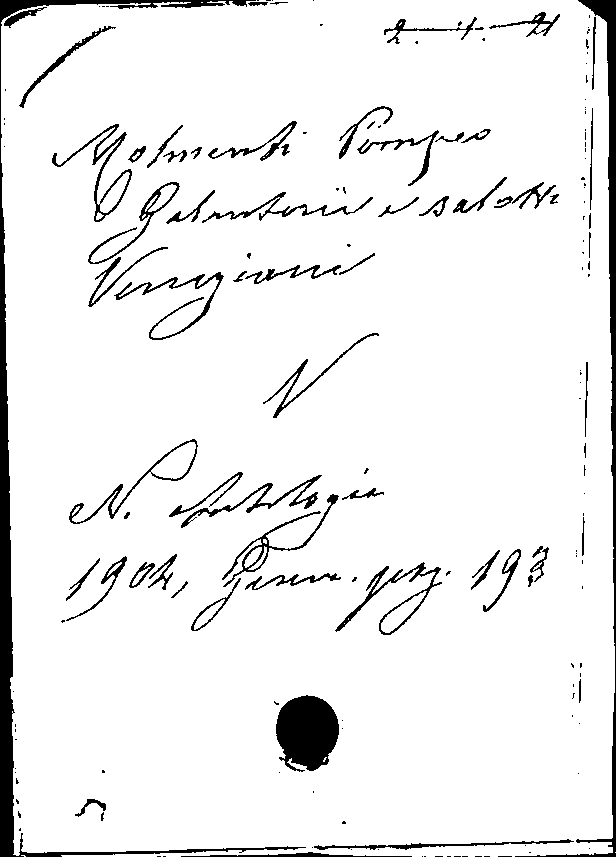 2. 4. 21
Molmenti Pompeo
Galanterie e salotti
Veneziani
N
N. Antologia
1904, Genn. pag. 193